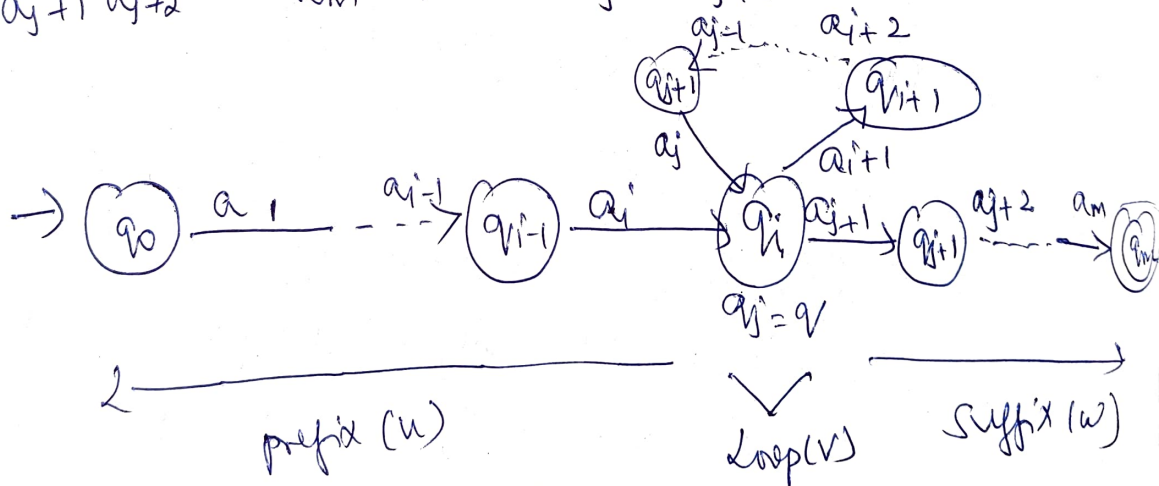 aj+1 aj+2
aj-1 ai+2
qj+1 qi+1
aj ai+1
q0 a1 ai-1 qi-1 ai qi aj+1 qj+1 aj+2 am qm
qj = q
prefix (u) Loop(v) Suffix (w)